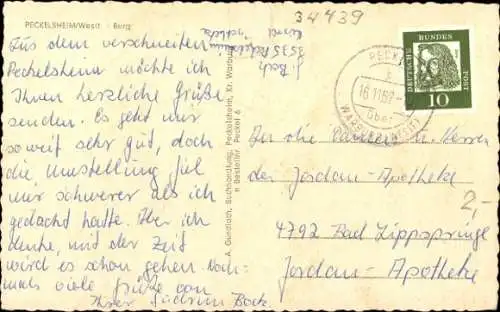 PECKELSHEIM/Westf. - Burg
34439
Aus dem verschneiten
Peckelsheim möchte ich
Ihnen herzliche Grüße
senden. Es geht mir
soweit sehr gut, doch
die Umstellung fiel
mir schwerer als ich
gedacht hatte. Aber ich
denke, mit der Zeit
wird es schon gehen. Noch-
mals viele Grüße von
Ihrer Bock
3535 Peckelsheim
A. Gundlach, Buchhandlung, Peckelsheim, Kr. Warburg
Bestellnr. Peckel 6
16.11.62
über
WARBURG (WESTF)
DEUTSCHE BUNDES POST
10
An die Damen u. Herren
der Jordan-Apotheke
4792 Bad Lippspringe
Jordan-Apotheke
2,-